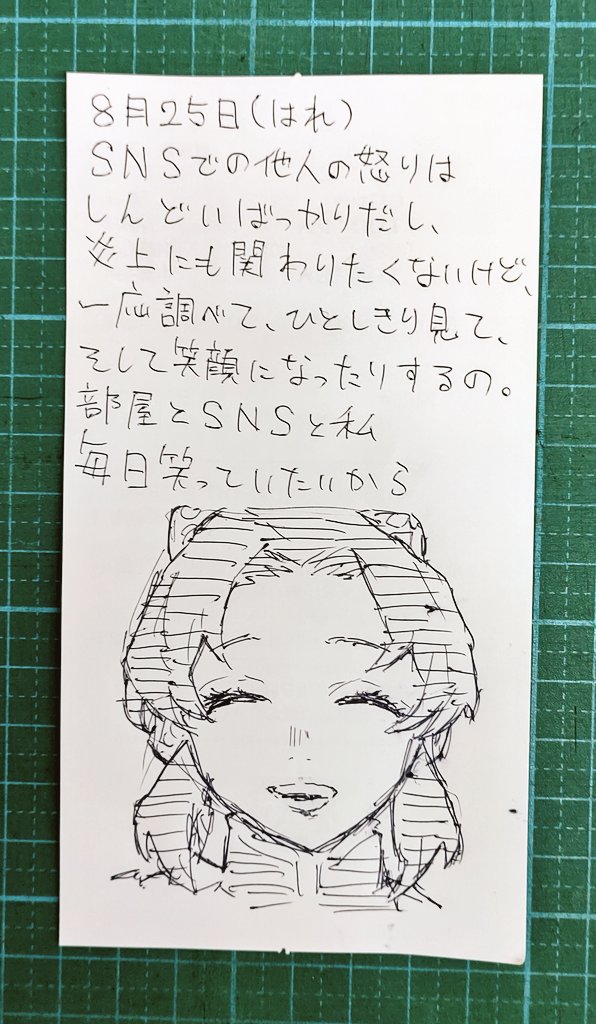 8月25日(はれ)
SNSでの他人の怒りは
しんどいばっかりだし、
炎上にも関わりたくないけど、
一応調べて、ひとしきり見て、
そして笑顔になったりするの。
部屋とSNSと私
毎日笑っていたいから